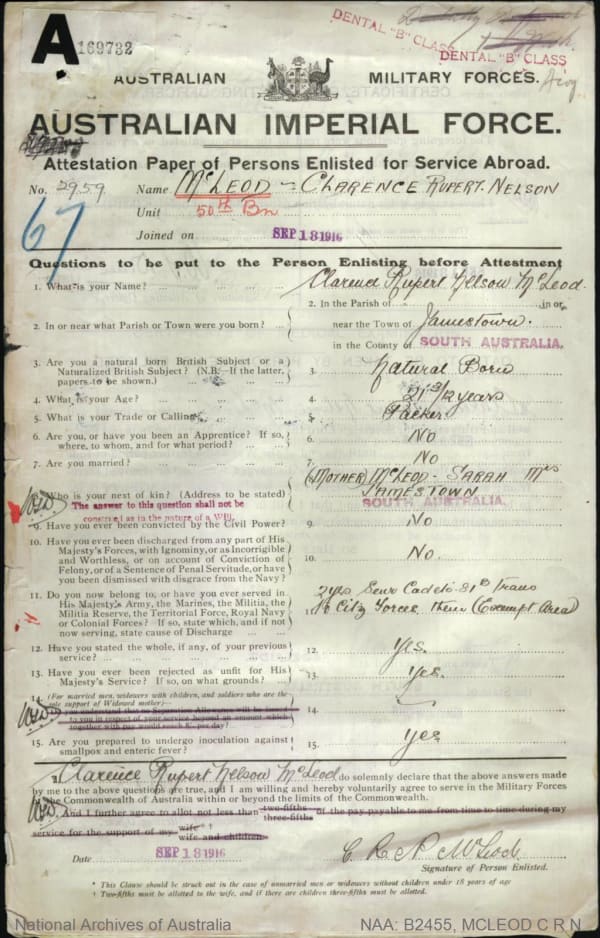 A 169732
DENTAL "B" CLASS
DENTAL "B" CLASS
AUSTRALIAN MILITARY FORCES.
AUSTRALIAN IMPERIAL FORCE.
Attestation Paper of Persons Enlisted for Service Abroad.
No. 2959 Name McLEOD - CLARENCE RUPERT NELSON
Unit 50th Bn
67
Joined on SEP 18 1916
Questions to be put to the Person Enlisting before Attestation
1. What is your Name? Clarence Rupert Nelson McLeod.
2. In or near what Parish or Town were you born? 2. In the Parish of in or
near the Town of Jamestown.
in the County of SOUTH AUSTRALIA.
3. Are you a natural born British Subject or a
Naturalized British Subject? (N.B.—If the latter,
papers to be shown.) 3. Natural Born
4. What is your Age? 4. 21 years
5. What is your Trade or Calling? 5. Packer
6. Are you, or have you been an Apprentice? If so,
where, to whom, and for what period? 6. No
7. Are you married? 7. No
8. Who is your next of kin? (Address to be stated) (MOTHER) McLEOD - SARAH Mrs
JAMESTOWN
SOUTH AUSTRALIA.
The answer to this question shall not be
construed as in the nature of a Will.
9. Have you ever been convicted by the Civil Power? 9. No
10. Have you ever been discharged from any part of His
Majesty's Forces, with Ignominy, or as Incorrigible
and Worthless, or on account of Conviction of
Felony, or of a Sentence of Penal Servitude, or have
you been dismissed with disgrace from the Navy? 10. No.
11. Do you now belong to, or have you ever served in
His Majesty's Army, the Marines, the Militia, the
Militia Reserve, the Territorial Force, Royal Navy
or Colonial Forces? If so, state which, and if not
now serving, state cause of Discharge 11. 2 yrs Senr Cadets 81st Trans
to City Forces then (Exempt Area)
12. Have you stated the whole, if any, of your previous
service? 12. Yes.
13. Have you ever been rejected as unfit for His
Majesty's Service? If so, on what grounds? 13. Yes.
14. (For married men, widowers with children, and soldiers who are the
sole support of Widowed mother)—
Do you understand that no Separation Allowance will be issued
to you in respect of your service beyond an amount which
together with pay would reach 8s. per day? 14.
15. Are you prepared to undergo inoculation against
smallpox and enteric fever? 15. Yes
I, Clarence Rupert Nelson McLeod do solemnly declare that the above answers made
by me to the above questions are true, and I am willing and hereby voluntarily agree to serve in the Military Forces
of the Commonwealth of Australia within or beyond the limits of the Commonwealth.
And I further agree to allot not less than two-fifths three-fifths of the pay payable to me from time to time during my
service for the support of my wife * † wife and children.
Date SEP 18 1916 C R N McLeod
Signature of Person Enlisted.
* This Clause should be struck out in the case of unmarried men or widowers without children under 18 years of age
† Two-fifths must be allotted to the wife, and if there are children three-fifths must be allotted.
National Archives of Australia NAA: B2455, MCLEOD C R N